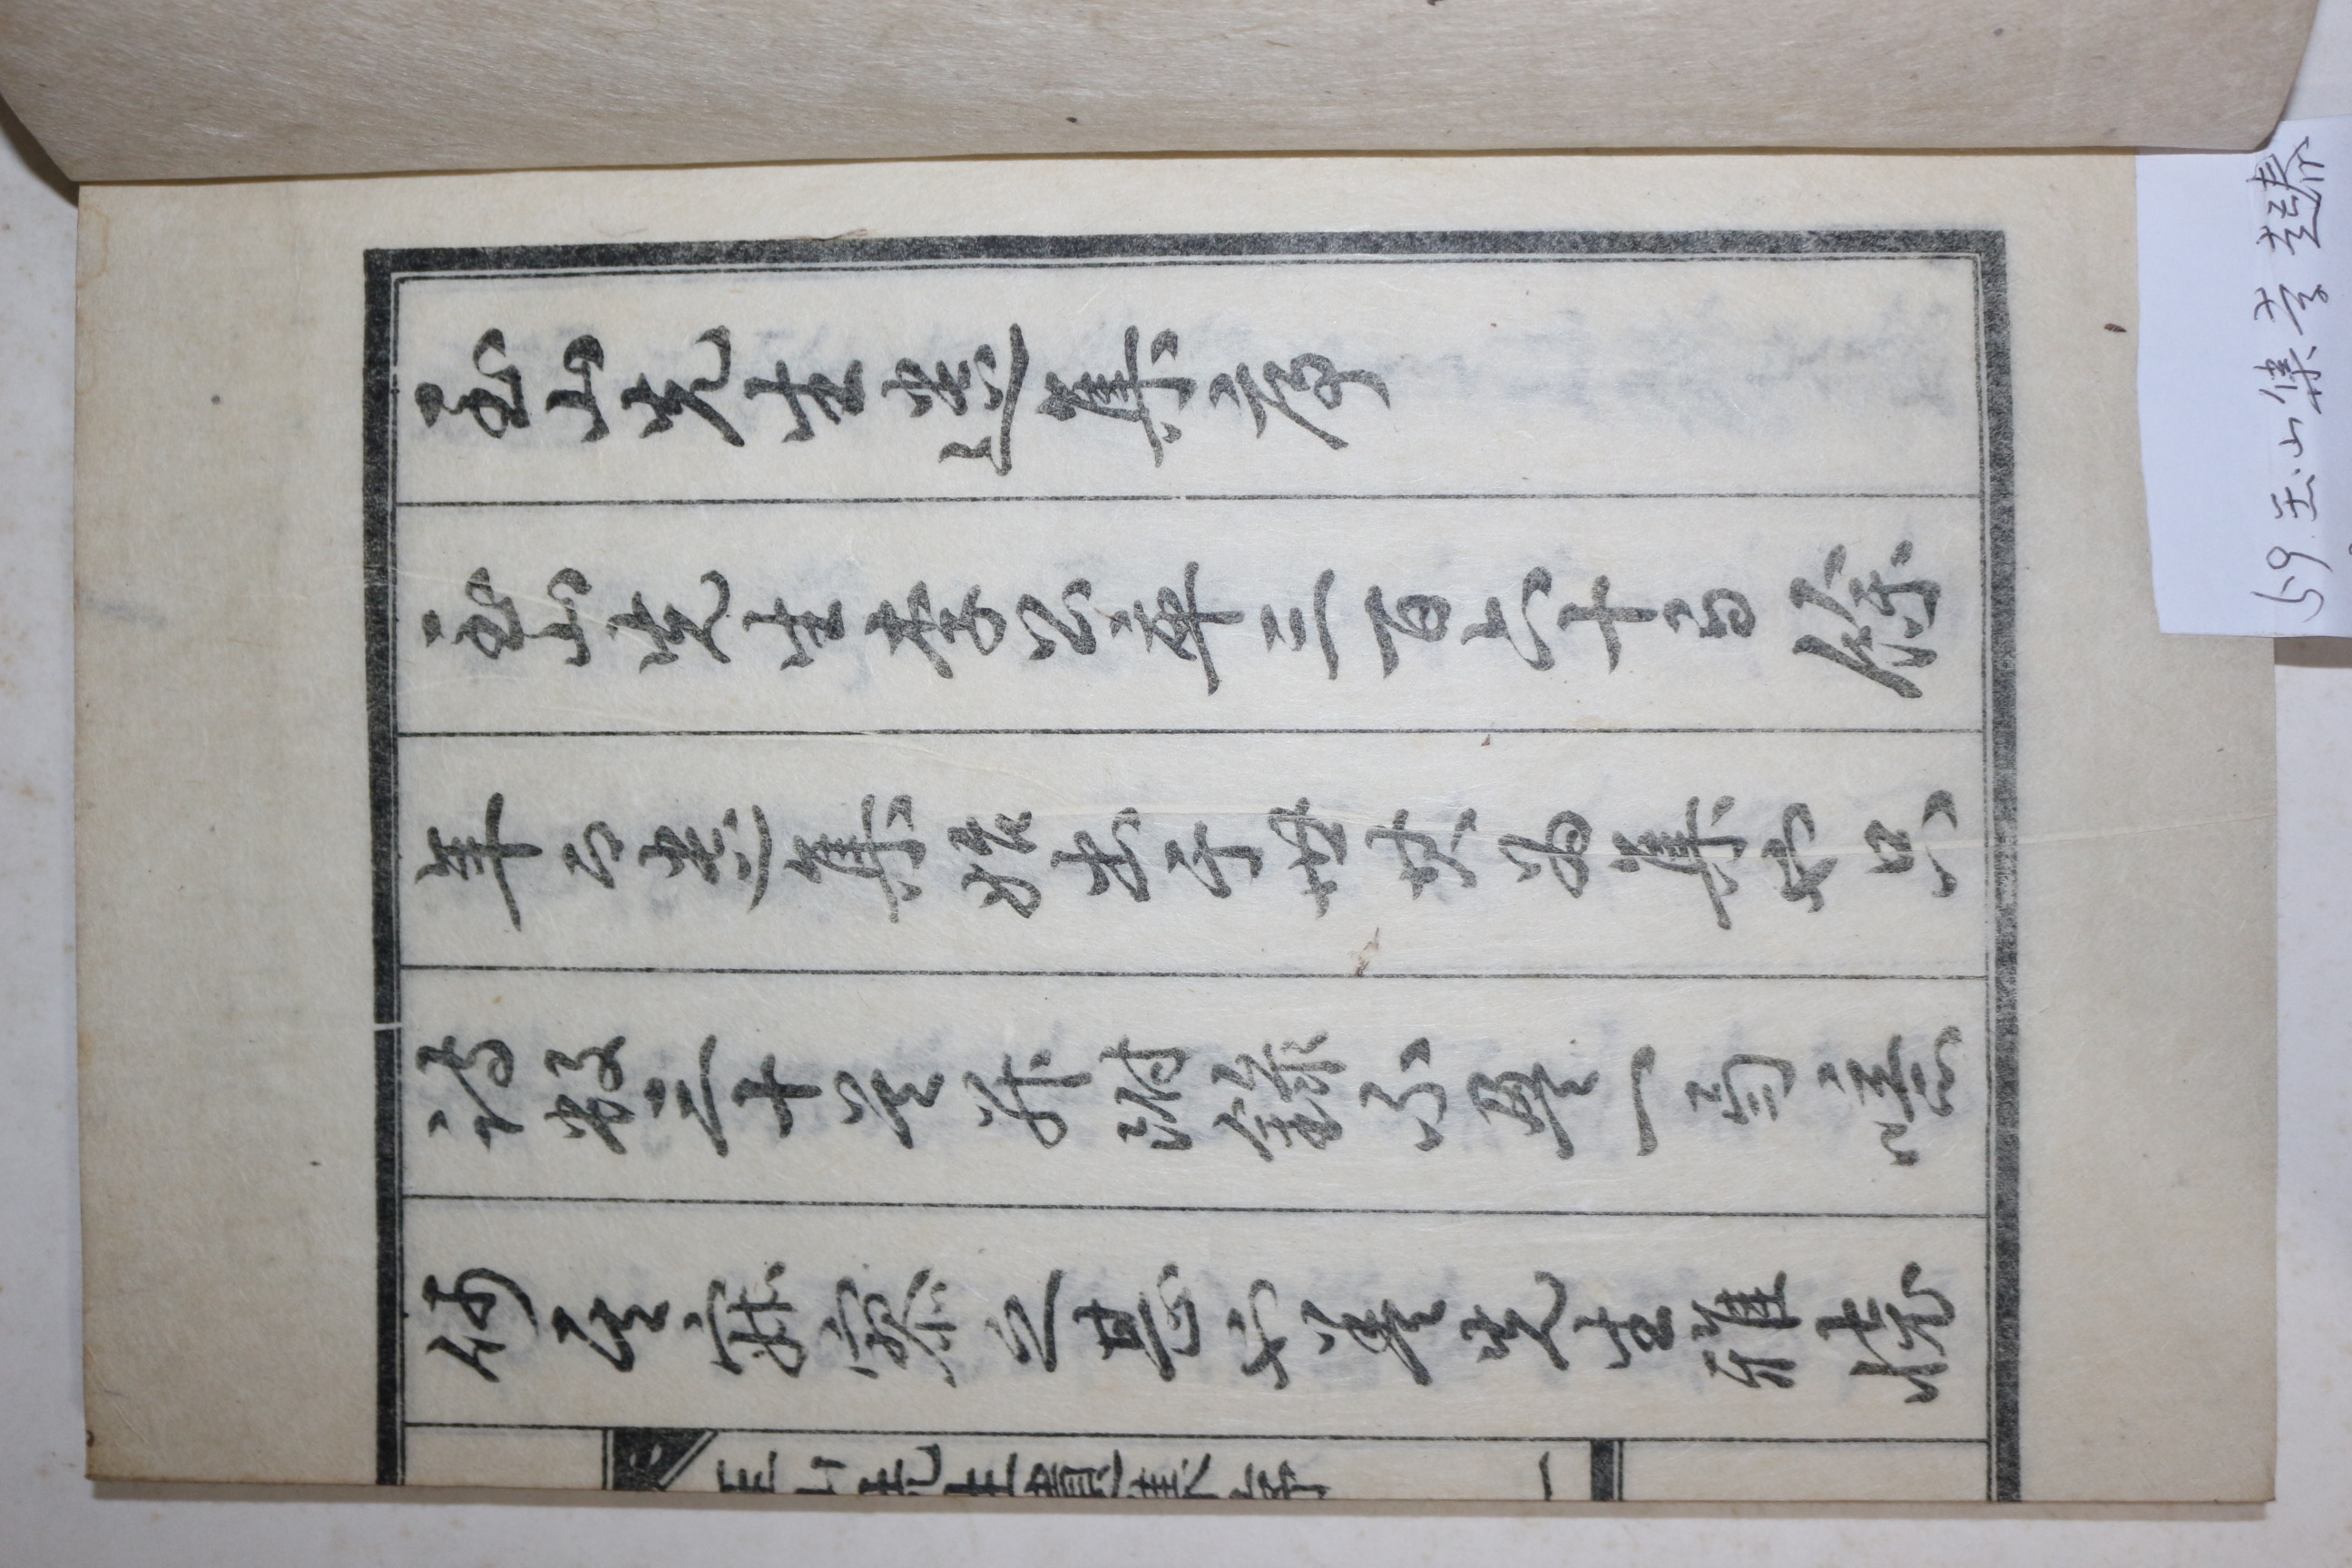 玉山先生遺集序
玉山先生李公卒三百六十有餘
年而遺集始出于世其為集也只
詩數三十首并附錄不盈一弓噫
何其寂寥之甚也盖先生雅懷
一
59 玉山集 李起春